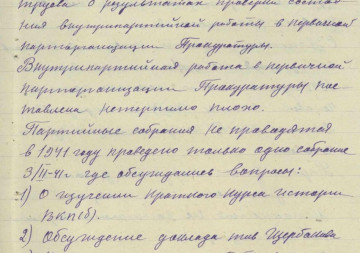 Трусова о результатах проверки состоя-
ния внутрипартийной работы в первичной
парторганизации Прокуратуры.
Внутрипартийная работа в первичной
парторганизации Прокуратуры пос-
тавлена нетерпимо плохо.
Партийные собрания не проводятся
в 1941 году проведено только одно собрание
3/II-41г. где обсуждались вопросы:
1) О изучении краткого курса истории
ВКП(б).
2) Обсуждение доклада тов Щербакова